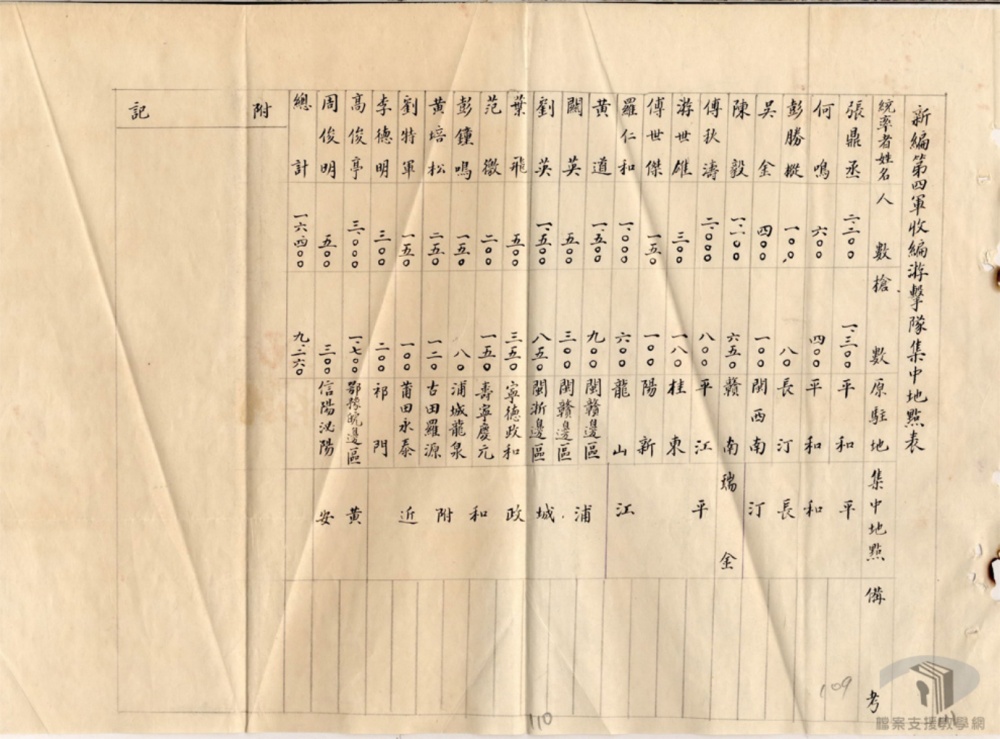 新編第四軍收編游擊隊集中地點表
統率者姓名 人數 槍數 原駐地 集中地點 備考
張鼎丞 二.二〇〇 一.三〇〇 平和 平
何鳴 六〇〇 四〇〇 平和 和
彭勝樅 一〇〇 八〇 長汀 長
吳金 四〇〇 一〇〇 閩西南 汀
陳毅 一.一〇〇 六五〇 贛南 瑞金
傅秋濤 二.〇〇〇 八〇〇 平江 平
游世雄 三〇〇 一八〇 桂東
傅世傑 一五〇 一〇〇 陽新
羅仁和 一.〇〇〇 六〇〇 龍山 江
黃道 一.五〇〇 九〇〇 閩贛邊區 浦
闕英 五〇〇 三〇〇 閩贛邊區
劉英 一.五〇〇 八五〇 閩浙邊區 城
葉飛 五〇〇 三五〇 寧德政和 政
范徽 二〇〇 一五〇 壽寧慶元 和
彭鐘鳴 一五〇 八〇 浦城龍泉
黃培松 二五〇 一二〇 古田羅源 附
劉特軍 一五〇 一〇〇 莆田永泰 近
李德明 三〇〇 二〇〇 祁門
高俊亭 三.〇〇〇 一.七〇〇 鄂豫皖邊區 黃
周俊明 五〇〇 三〇〇 信陽泌陽 安
總計 一六.四〇〇 九.二六〇
附記
109
110
檔案支援教學網